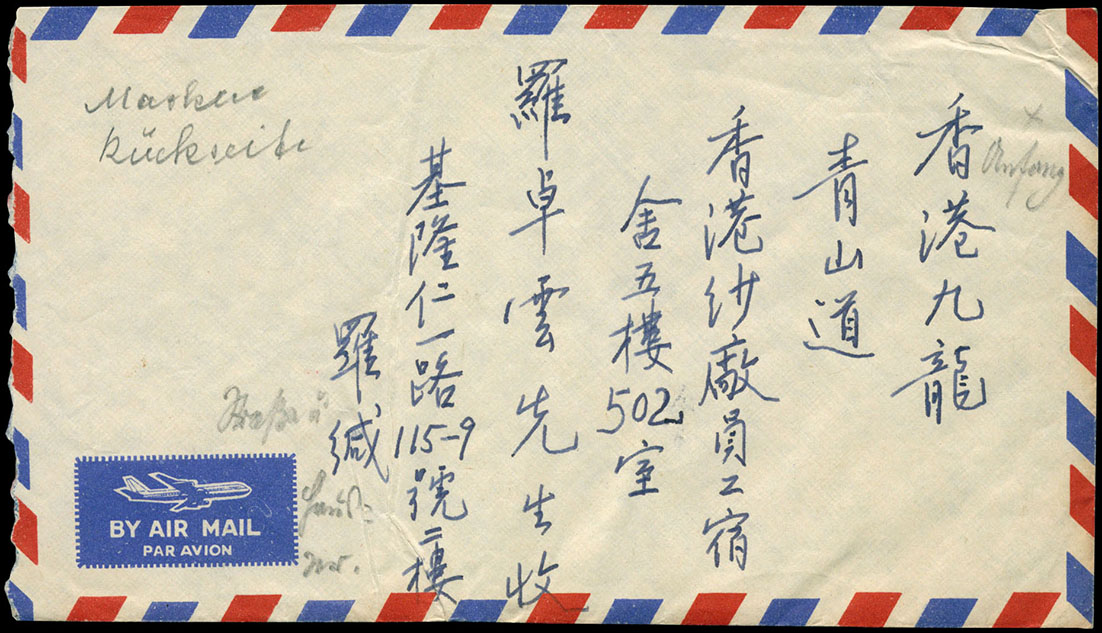 香港九龍
青山道
香港紗廠員工宿
舍五樓502室
羅卓雲先生收
基隆仁一路115-9號二樓
羅緘
Marken
Rückseite
Anfang
Straße u
Haus=
nr.
BY AIR MAIL
PAR AVION